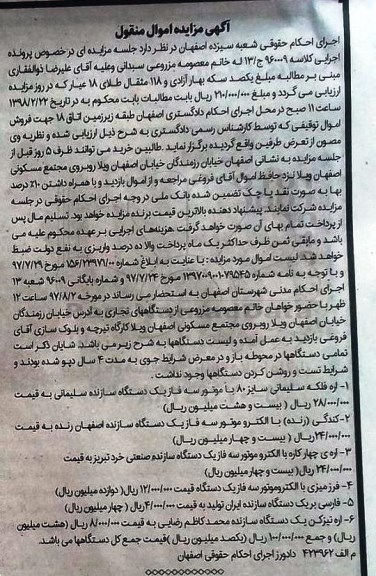 آگهی مزایده اموال منقول
اجرای احکام حقوقی شعبه سیزده اصفهان در نظر دارد جلسه مزایده ای در خصوص پرونده
اجرایی کلاسه ۹۶۰۰۰۹ ج/۱۳ له خانم معصومه مزروعی سبدانی وعلیه آقای علیرضا ذوالفقاری
مبنی بر مطالبه مبلغ یکصد سکه بهار آزادی و ۱۱۸ مثقال طلای ۱۸ عیار که در روز مزایده
ارزیابی می گردد و مبلغ ۲۱۰/۰۰۰/۰۰۰ ریال بابت مطالبات بابت محکوم به در تاریخ ۱۳۹۸/۲/۲۲
ساعت ۱۱ صبح در محل اجرای احکام دادگستری اصفهان طبقه زیرزمین اتاق ۱۸ جهت فروش
اموال توقیفی که توسط کارشناس رسمی دادگستری به شرح ذیل ارزیابی شده و نظریه وی
مصون از تعرض طرفین واقع گردیده برگزار نماید. طالبین خرید می توانند ظرف ۵ روز قبل از
جلسه مزایده به نشانی اصفهان خیابان رزمندگان خیابان اصفهان ویلا روبروی مجتمع مسکونی
اصفهان ویلا نزد حافظ اموال آقای فروغی مراجعه و از اموال بازدید و با همراه داشتن ۱۰٪ درصد
بها به صورت نقد یا چک تضمین شده بانک ملی در وجه اجرای احکام حقوقی در جلسه
مزایده شرکت نمایند. پیشنهاد دهنده بالاترین قیمت برنده مزایده خواهد بود. تسلیم مال پس
از پرداخت تمام بهای آن صورت خواهد گرفت هزینه‌های اجرایی بر عهده محکوم علیه می
باشد و مابقی ثمن ظرف حداکثر یک ماه پرداخت والا ده درصد واریزی به نفع دولت ضبط
خواهد شد. لیست اموال مورد مزایده : با عنایت به ابلاغ شماره مورخ ۹۷/۷/۲۹
و با توجه به نامه شماره مورخ ۹۷/۷/۲۴ و شماره بایگانی ۹۶۰۰۹ شعبه ۱۳
اجرای احکام مدنی شهرستان اصفهان به استحضار می رساند در مورخه ۹۷/۸/۲ ساعت ۱۲
ظهر با حضور خواهان خانم معصومه مزروعی از دستگاههای تجاری به آدرس خیابان رزمندگان
خیابان اصفهان ویلا روبروی مجتمع مسکونی اصفهان ویلا کارگاه تیرچه و بلوک سازی آقای
فروغی بازدید به عمل آمده و لیست دستگاهها به شرح زیر می باشد. شایان ذکر است
تمامی دستگاهها در محوطه باز و در معرض شرایط جوی به مدت ۴ سال دپو شده بودند و
شرایط تست و روشن کردن دستگاهها وجود نداشت.
۱- اره فلکه سلیمانی سایز ۸۰ با موتور سه فاز یک دستگاه سازنده سلیمانی به قیمت
۲۸۰/۰۰۰/۰۰۰ ریال ( بیست و هشت میلیون ریال)
۲- کندگی (رنده) با الکترو موتور سه فاز یک دستگاه سازنده اصفهان رنده به قیمت
۲۴/۰۰۰/۰۰۰ ریال ( بیست و چهار میلیون ریال)
۳- اره ی چهار کاره با الکترو موتور سه فاز یک دستگاه سازنده صنعتی خرد تبریز به قیمت
۲۴/۰۰۰/۰۰۰ ریال( بیست و چهار میلیون ریال)
۴- فرز میزی با الکتروموتور سه فاز یک دستگاه قیمت ۱۲/۰۰۰/۰۰۰ ریال( دوازده میلیون ریال)
۵- فارسی بر یک دستگاه سازنده ایران تولید به قیمت ۴/۰۰۰/۰۰۰ ریال ( چهار میلیون ریال)
۶- اره تیزکن یک دستگاه سازنده محمد کاظم رضایی به قیمت ۸/۰۰۰/۰۰۰ ریال (هشت میلیون
ریال) و جمع ۱۰۰/۰۰۰/۰۰۰ (یکصد میلیون ریال) قیمت جمع کل دستگاهها می باشد.
م الف ۴۲۳۹۶۲ دادورز اجرای احکام حقوقی اصفهان